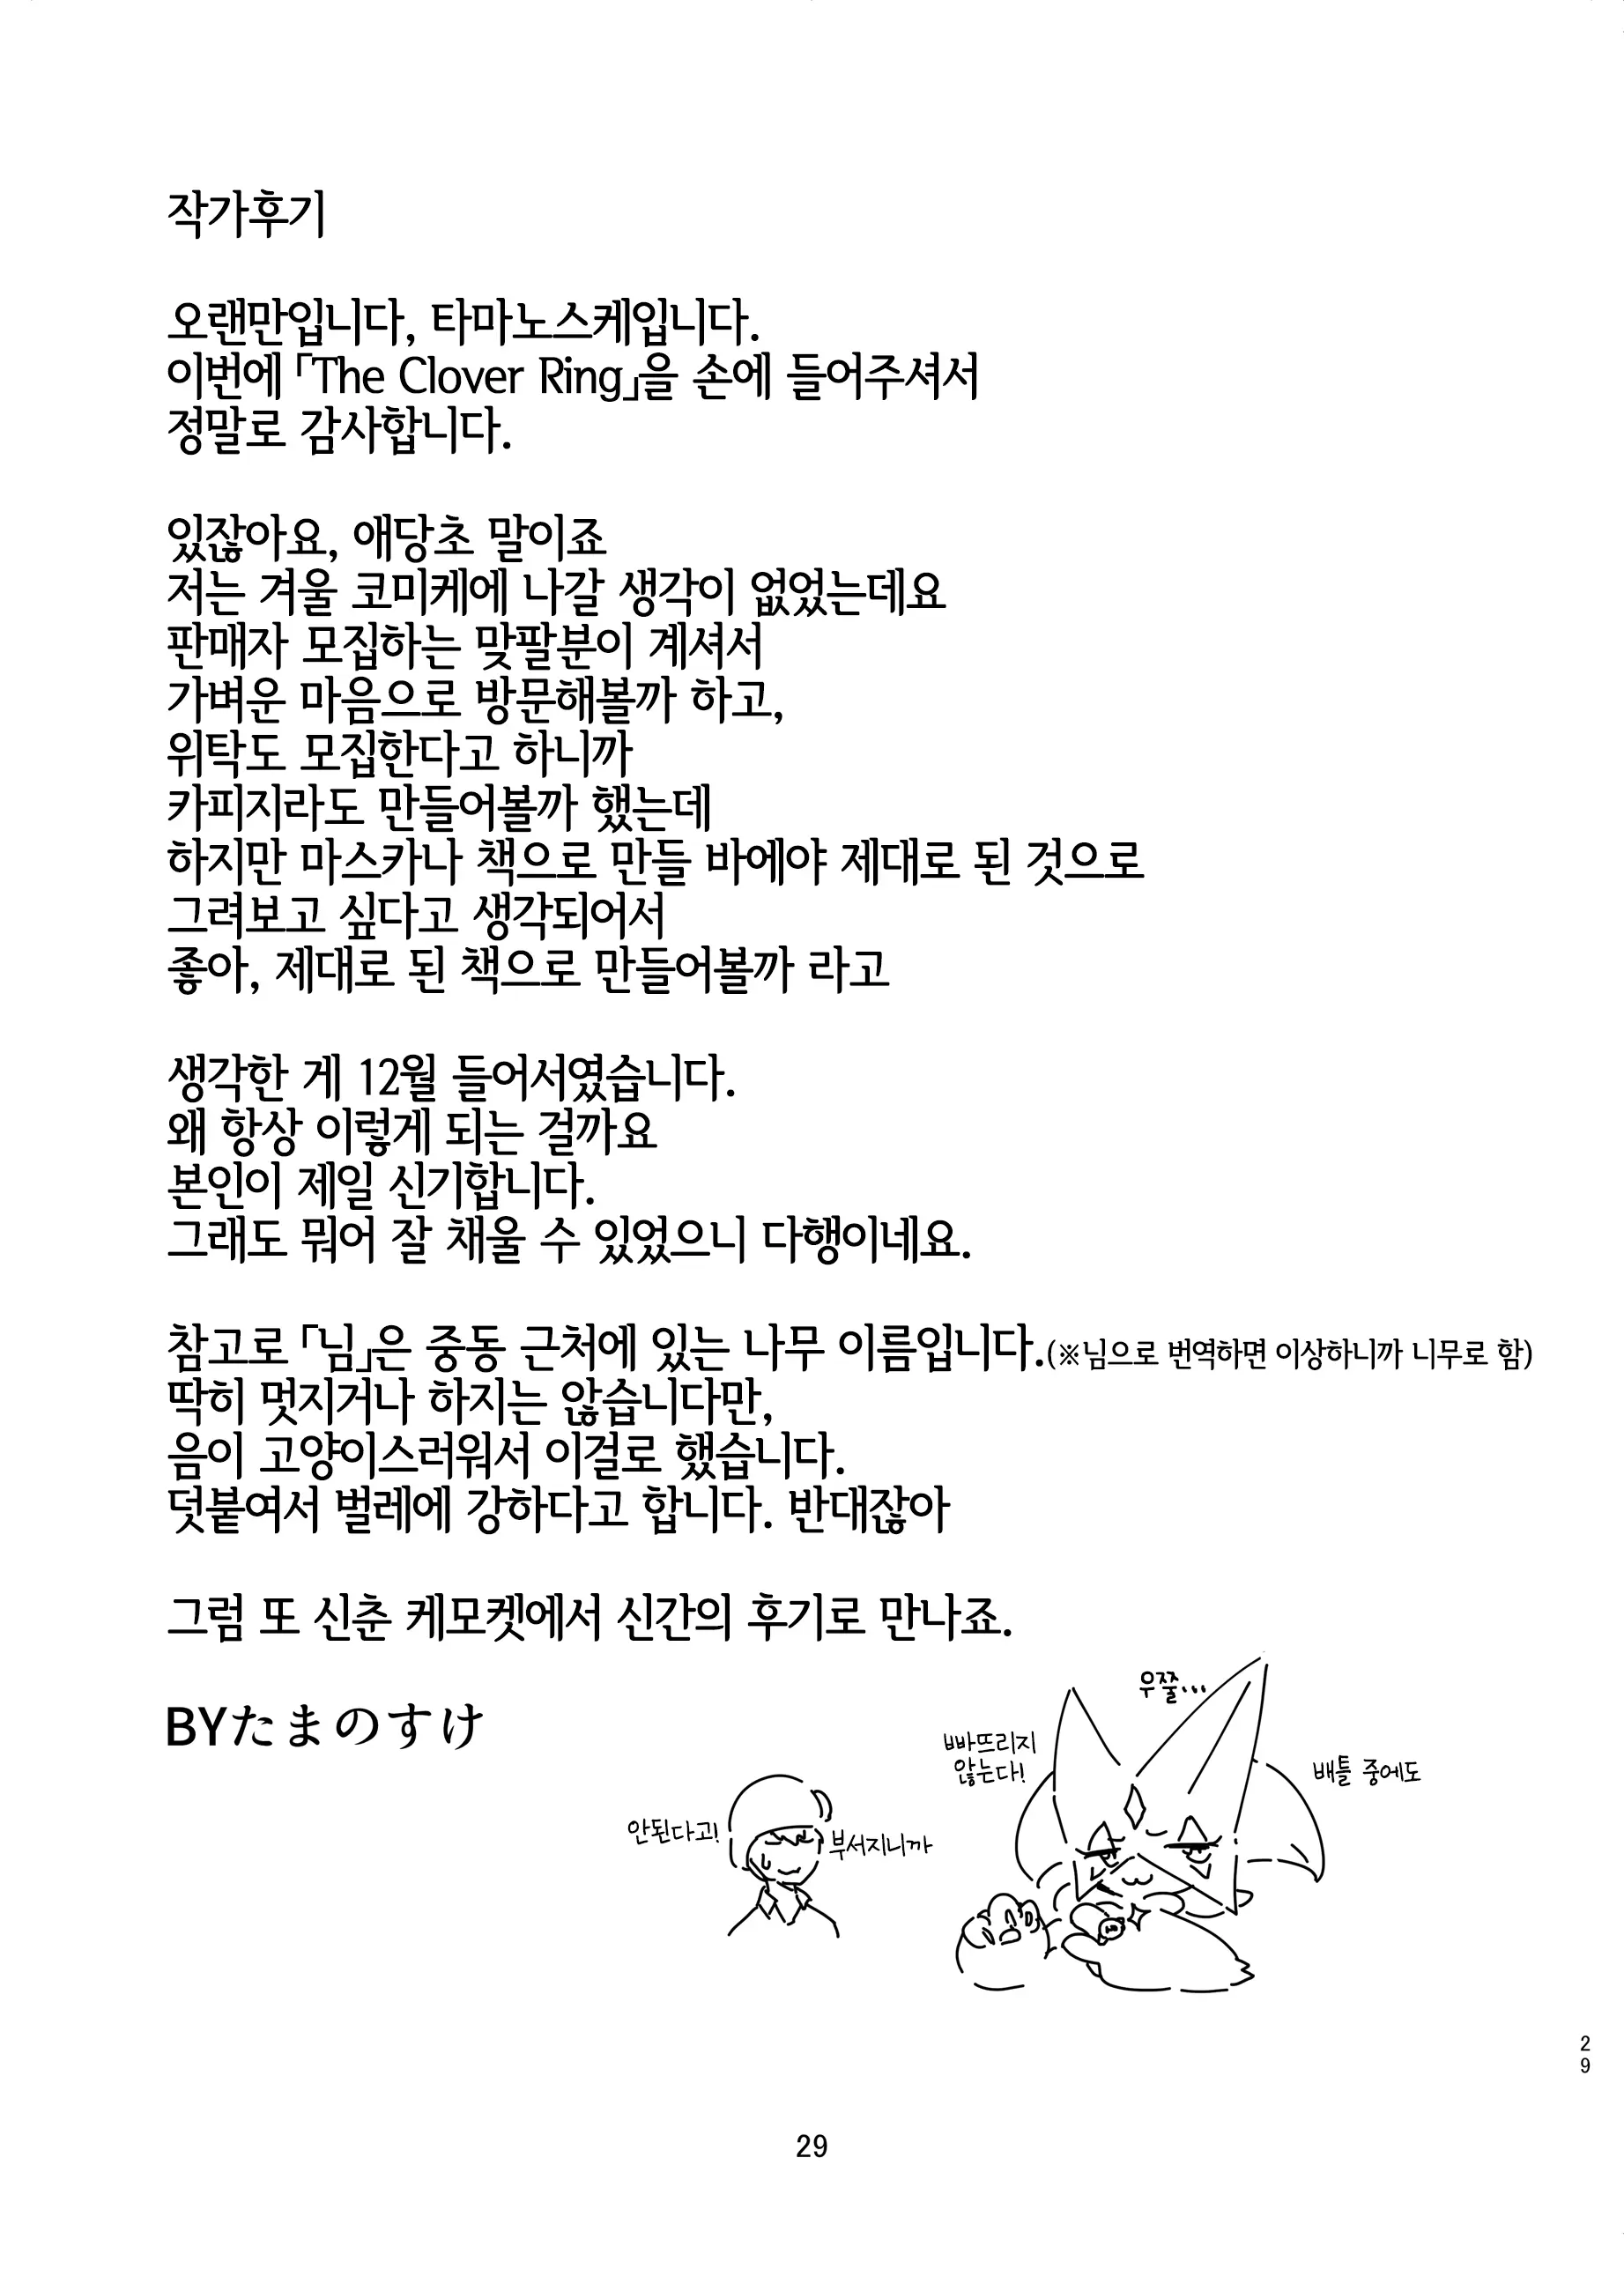 작가후기
오랜만입니다, 타마노스케입니다.
이번에 「The Clover Ring」을 손에 들어주셔서
정말로 감사합니다.
있잖아요, 애당초 말이죠
저는 겨울 코미케에 나갈 생각이 없었는데요
판매자 모집하는 맞팔분이 계셔서
가벼운 마음으로 방문해볼까 하고,
위탁도 모집한다고 하니까
카피지라도 만들어볼까 했는데
하지만 마스카나 책으로 만들 바에야 제대로 된 것으로
그려보고 싶다고 생각되어서
좋아, 제대로 된 책으로 만들어볼까 라고
생각한 게 12월 들어서였습니다.
왜 항상 이렇게 되는 걸까요
본인이 제일 신기합니다.
그래도 뭐어 잘 채울 수 있었으니 다행이네요.
참고로 「님」은 중동 근처에 있는 나무 이름입니다.(※님으로 번역하면 이상하니까 니무로 함)
딱히 멋지거나 하지는 않습니다만,
음이 고양이스러워서 이걸로 했습니다.
덧붙여서 벌레에 강하다고 합니다. 반대잖아
그럼 또 신춘 케모켓에서 신간의 후기로 만나죠.
BYたまのすけ
우쭐...
배틀 중에도
빠뜨리지
않는다!
부서지니까
안된다고!
29
29